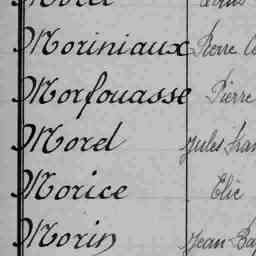 Moriniaux Pierre
Morfouasse Pierre
Morel Jules
Morice Elie
Morin Jean